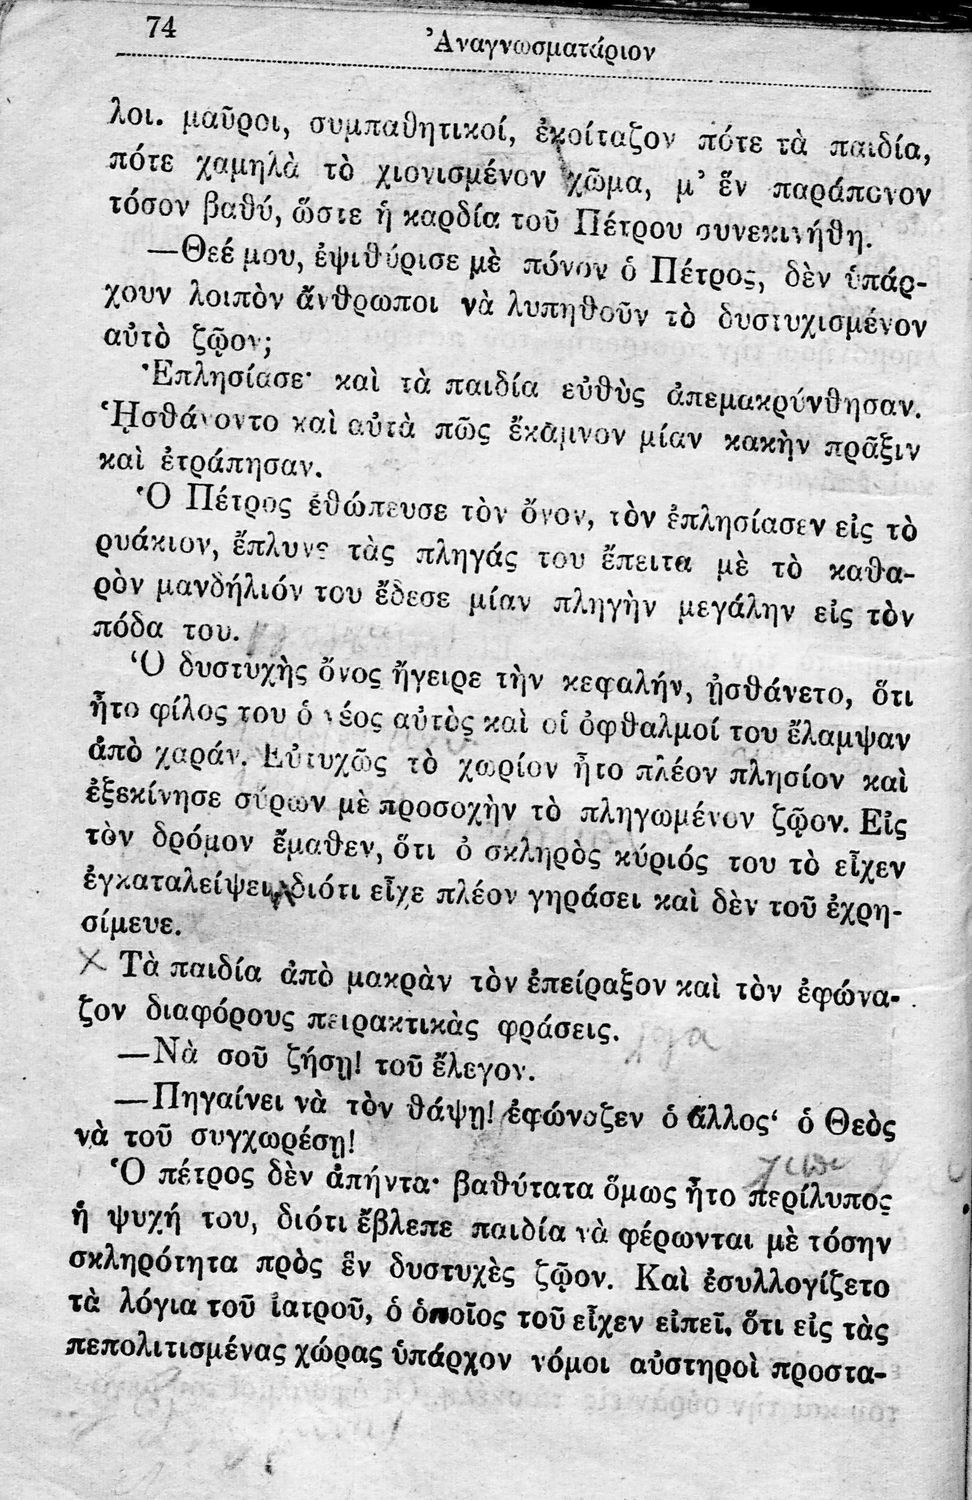 74
Ἀναγνωσματάριον
λοι. μαῦροι, συμπαθητικοί, ἐκοίταζον πότε τὰ παιδία,
πότε χαμηλὰ τὸ χιονισμένον χῶμα, μ’ ἓν παράπονον
τόσον βαθύ, ὥστε ἡ καρδία τοῦ Πέτρου συνεκινήθη.
—Θεέ μου, ἐψιθύρισε μὲ πόνον ὁ Πέτρος, δὲν ὑπάρ-
χουν λοιπὸν ἄνθρωποι νὰ λυπηθοῦν τὸ δυστυχισμένον
αὐτὸ ζῷον;
Ἐπλησίασε· καὶ τὰ παιδία εὐθὺς ἀπεμακρύνθησαν.
Ἠσθάνοντο καὶ αὐτὰ πῶς ἔκαμνον μίαν κακὴν πρᾶξιν
καὶ ἐτράπησαν.
Ὁ Πέτρος ἐθώπευσε τὸν ὄνον, τὸν ἐπλησίασεν εἰς τὸ
ρυάκιον, ἔπλυνε τὰς πληγάς του ἔπειτα μὲ τὸ καθα-
ρὸν μανδήλιόν του ἔδεσε μίαν πληγὴν μεγάλην εἰς τὸν
πόδα του.
Ὁ δυστυχὴς ὄνος ἤγειρε τὴν κεφαλήν, ᾐσθάνετο, ὅτι
ἦτο φίλος του ὁ νέος αὐτὸς καὶ οἱ ὀφθαλμοί του ἔλαμψαν
ἀπὸ χαράν. Εὐτυχῶς τὸ χωρίον ἦτο πλέον πλησίον καὶ
ἐξεκίνησε σύρων μὲ προσοχὴν τὸ πληγωμένον ζῷον. Εἰς
τὸν δρόμον ἔμαθεν, ὅτι ὁ σκληρὸς κύριός του τὸ εἶχεν
ἐγκαταλείψει, διότι εἶχε πλέον γηράσει καὶ δὲν τοῦ ἐχρη-
σίμευε.
Τὰ παιδία ἀπὸ μακρὰν τὸν ἐπείραξον καὶ τὸν ἐφώνα-
ζον διαφόρους πειρακτικὰς φράσεις.
—Νὰ σοῦ ζήσῃ! τοῦ ἔλεγον.
—Πηγαίνει νὰ τὸν θάψῃ! ἐφώναζεν ὁ ἄλλος‘ ὁ Θεὸς
νὰ τοῦ συγχωρέσῃ!
Ὁ πέτρος δὲν ἀπήντα· βαθύτατα ὅμως ἦτο περίλυπος
ἡ ψυχή του, διότι ἔβλεπε παιδία νὰ φέρωνται μὲ τόσην
σκληρότητα πρὸς ἓν δυστυχὲς ζῷον. Καὶ ἐσυλλογίζετο
τὰ λόγια τοῦ ἰατροῦ, ὁ ὁποῖος τοῦ εἶχεν εἰπεῖ. ὅτι εἰς τὰς
πεπολιτισμένας χώρας ὑπάρχον νόμοι αὐστηροὶ προστα-